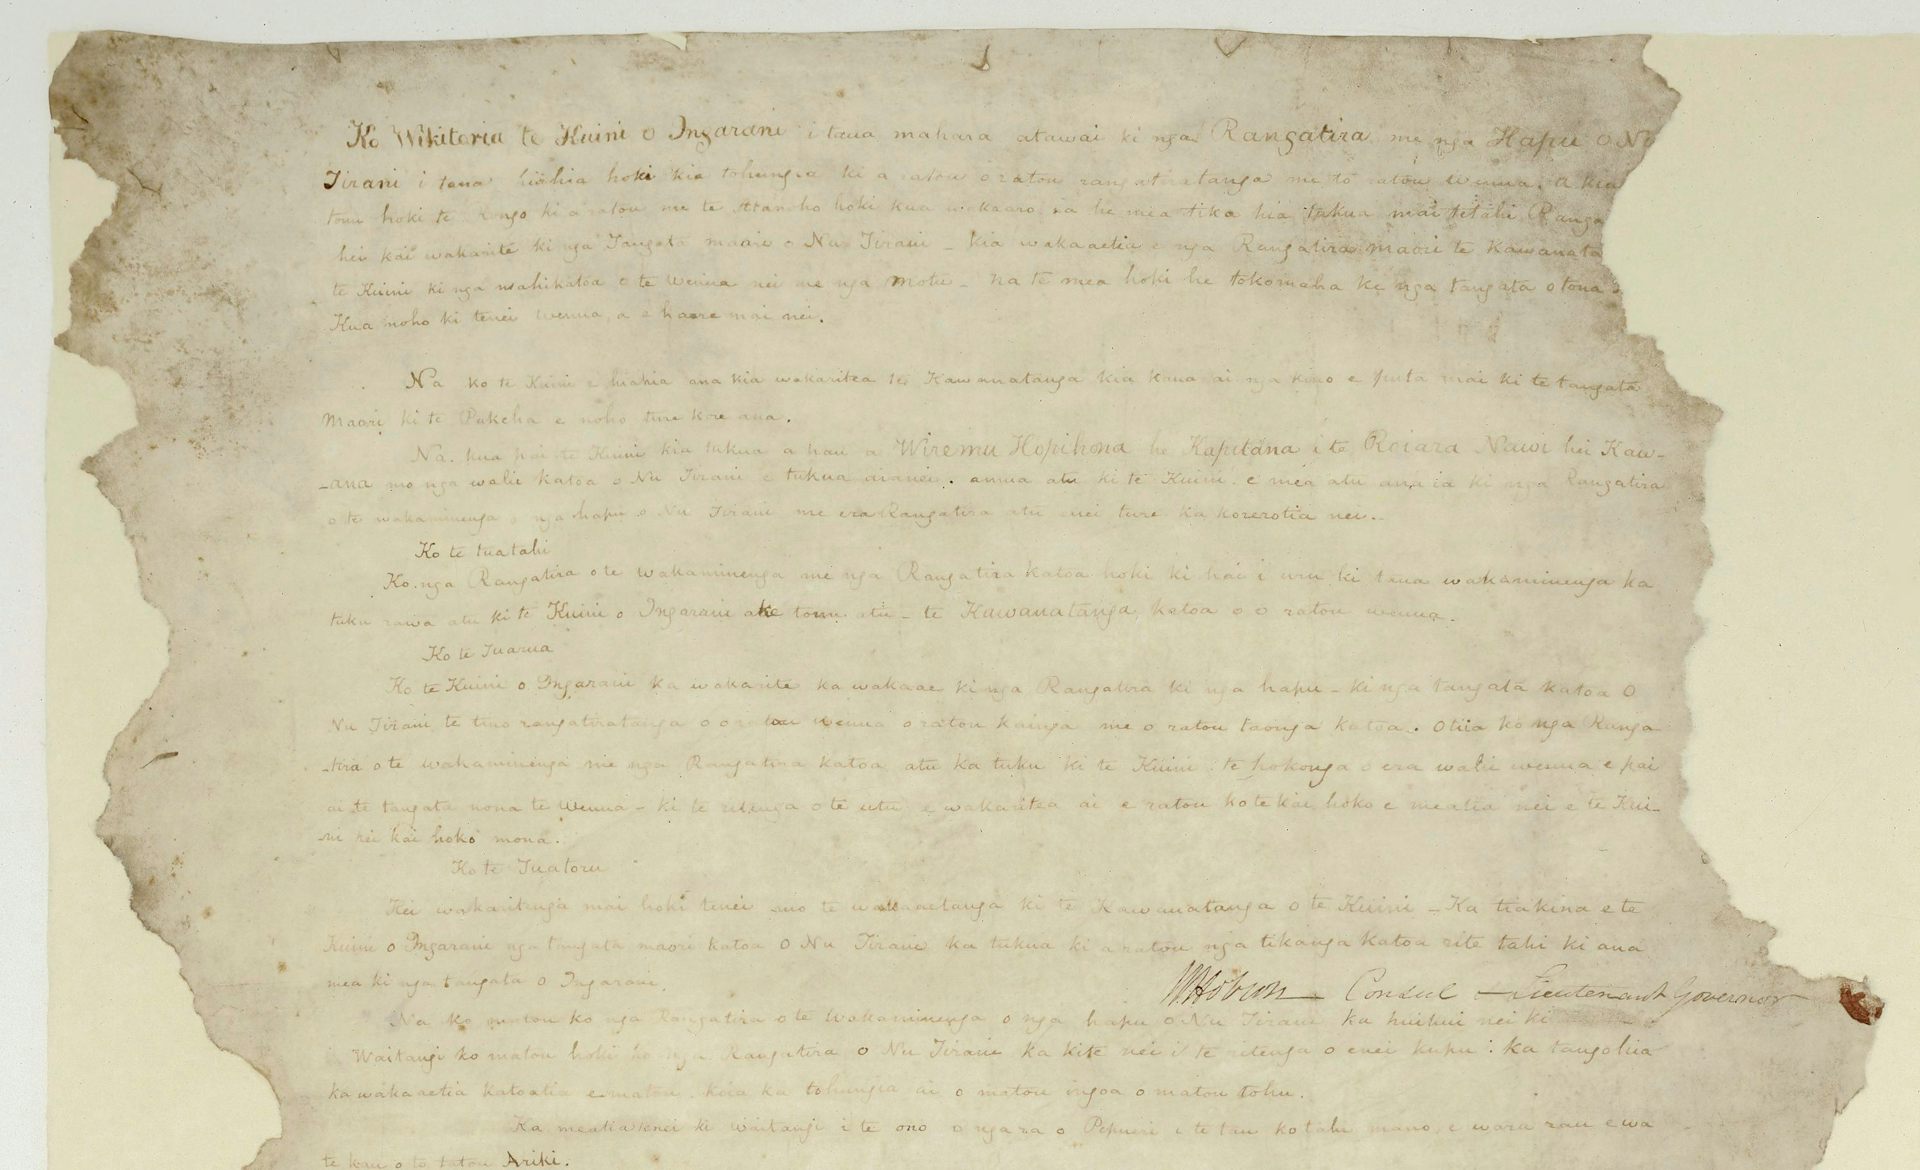 Ko Wikitoria te Kuini o Ingarani i tana mahara atawai ki nga Rangatira me nga Hapu o Nu
Tirani i tana hiahia hoki kia tohungia ki a ratou o ratou rangatiratanga me to ratou wenua, a kia
tonu hoki te Rongo ki a ratou me te Atanoho hoki kua wakaaro ia he mea tika kia tukua mai tetahi Ranga
hei kai wakarite ki nga Tangata maori o Nu Tirani – kia wakaaetia e nga Rangatira maori te Kawanata
te Kuini ki nga wahikatoa o te wenua nei me nga motu – na te mea hoki he tokomaha ke nga tangata o tona
Kua noho ki tenei wenua, a e haere mai nei.
Na ko te Kuini e hiahia ana kia wakaritea te Kawanatanga kia kaua ai nga kino e puta mai ki te tangata
Maori ki te Pakeha e noho ture kore ana.
Na, kua pai te Kuini kia tukua a hau a Wiremu Hopihona he Kapitana i te Roiara Nawi hei Kaw-
-ana mo nga wahi katoa o Nu Tirani e tukua aianei. amua atu ki te Kuini. e mea atu ana ia ki nga Rangatira
o te wakaminenga o nga hapu o Nu Tirani me era Rangatira atu enei ture ka korerotia nei.
Ko te tuatahi
Ko nga Rangatira o te wakaminenga me nga Rangatira katoa hoki ki hai i uru ki taua wakaminenga ka
tuku rawa atu ki te Kuini o Ingarani ake tonu atu – te Kawanatanga katoa o o ratou wenua.
Ko te Tuarua
Ko te Kuini o Ingarani ka wakarite ka wakaae ki nga Rangatira ki nga hapu – ki nga tangata katoa o
Nu Tirani te tino rangatiratanga o o ratou wenua o ratou kainga me o ratou taonga katoa. Otiia ko nga Ranga
-tira o te wakaminenga me nga Rangatira katoa atu ka tuku ki te Kuini te hokonga o era wahi wenua e pai
ai te tangata nona te Wenua – ki te ritenga o te utu e wakaritea ai e ratou ko te kai hoko e meatia nei e te Kui-
-ni hei kai hoko mona.
Ko te Tuatoru
Hei wakaritenga mai hoki tenei mo te wakaaetanga ki te Kawanatanga o te Kuini – Ka tiakina e te
Kuini o Ingarani nga tangata maori katoa o Nu Tirani ka tukua ki a ratou nga tikanga katoa rite tahi ki ana
mea ki nga tangata o Ingarani.
W Hobson Consul & Lieutenant Governor
Na ko matou ko nga Rangatira o te Wakaminenga o nga hapu o Nu Tirani ka huihui nei ki
Waitangi ko matou hoki ko nga Rangatira o Nu Tirani ka kite nei i te ritenga o enei kupu. ka tangohia
ka wakaaetia katoatia e matou, koia ka tohungia ai o matou ingoa o matou tohu.
Ka meatia tenei ki Waitangi i te ono o nga ra o Pepueri i te tau kotahi mano, e waru rau e wa
te kau o to tatou Ariki.